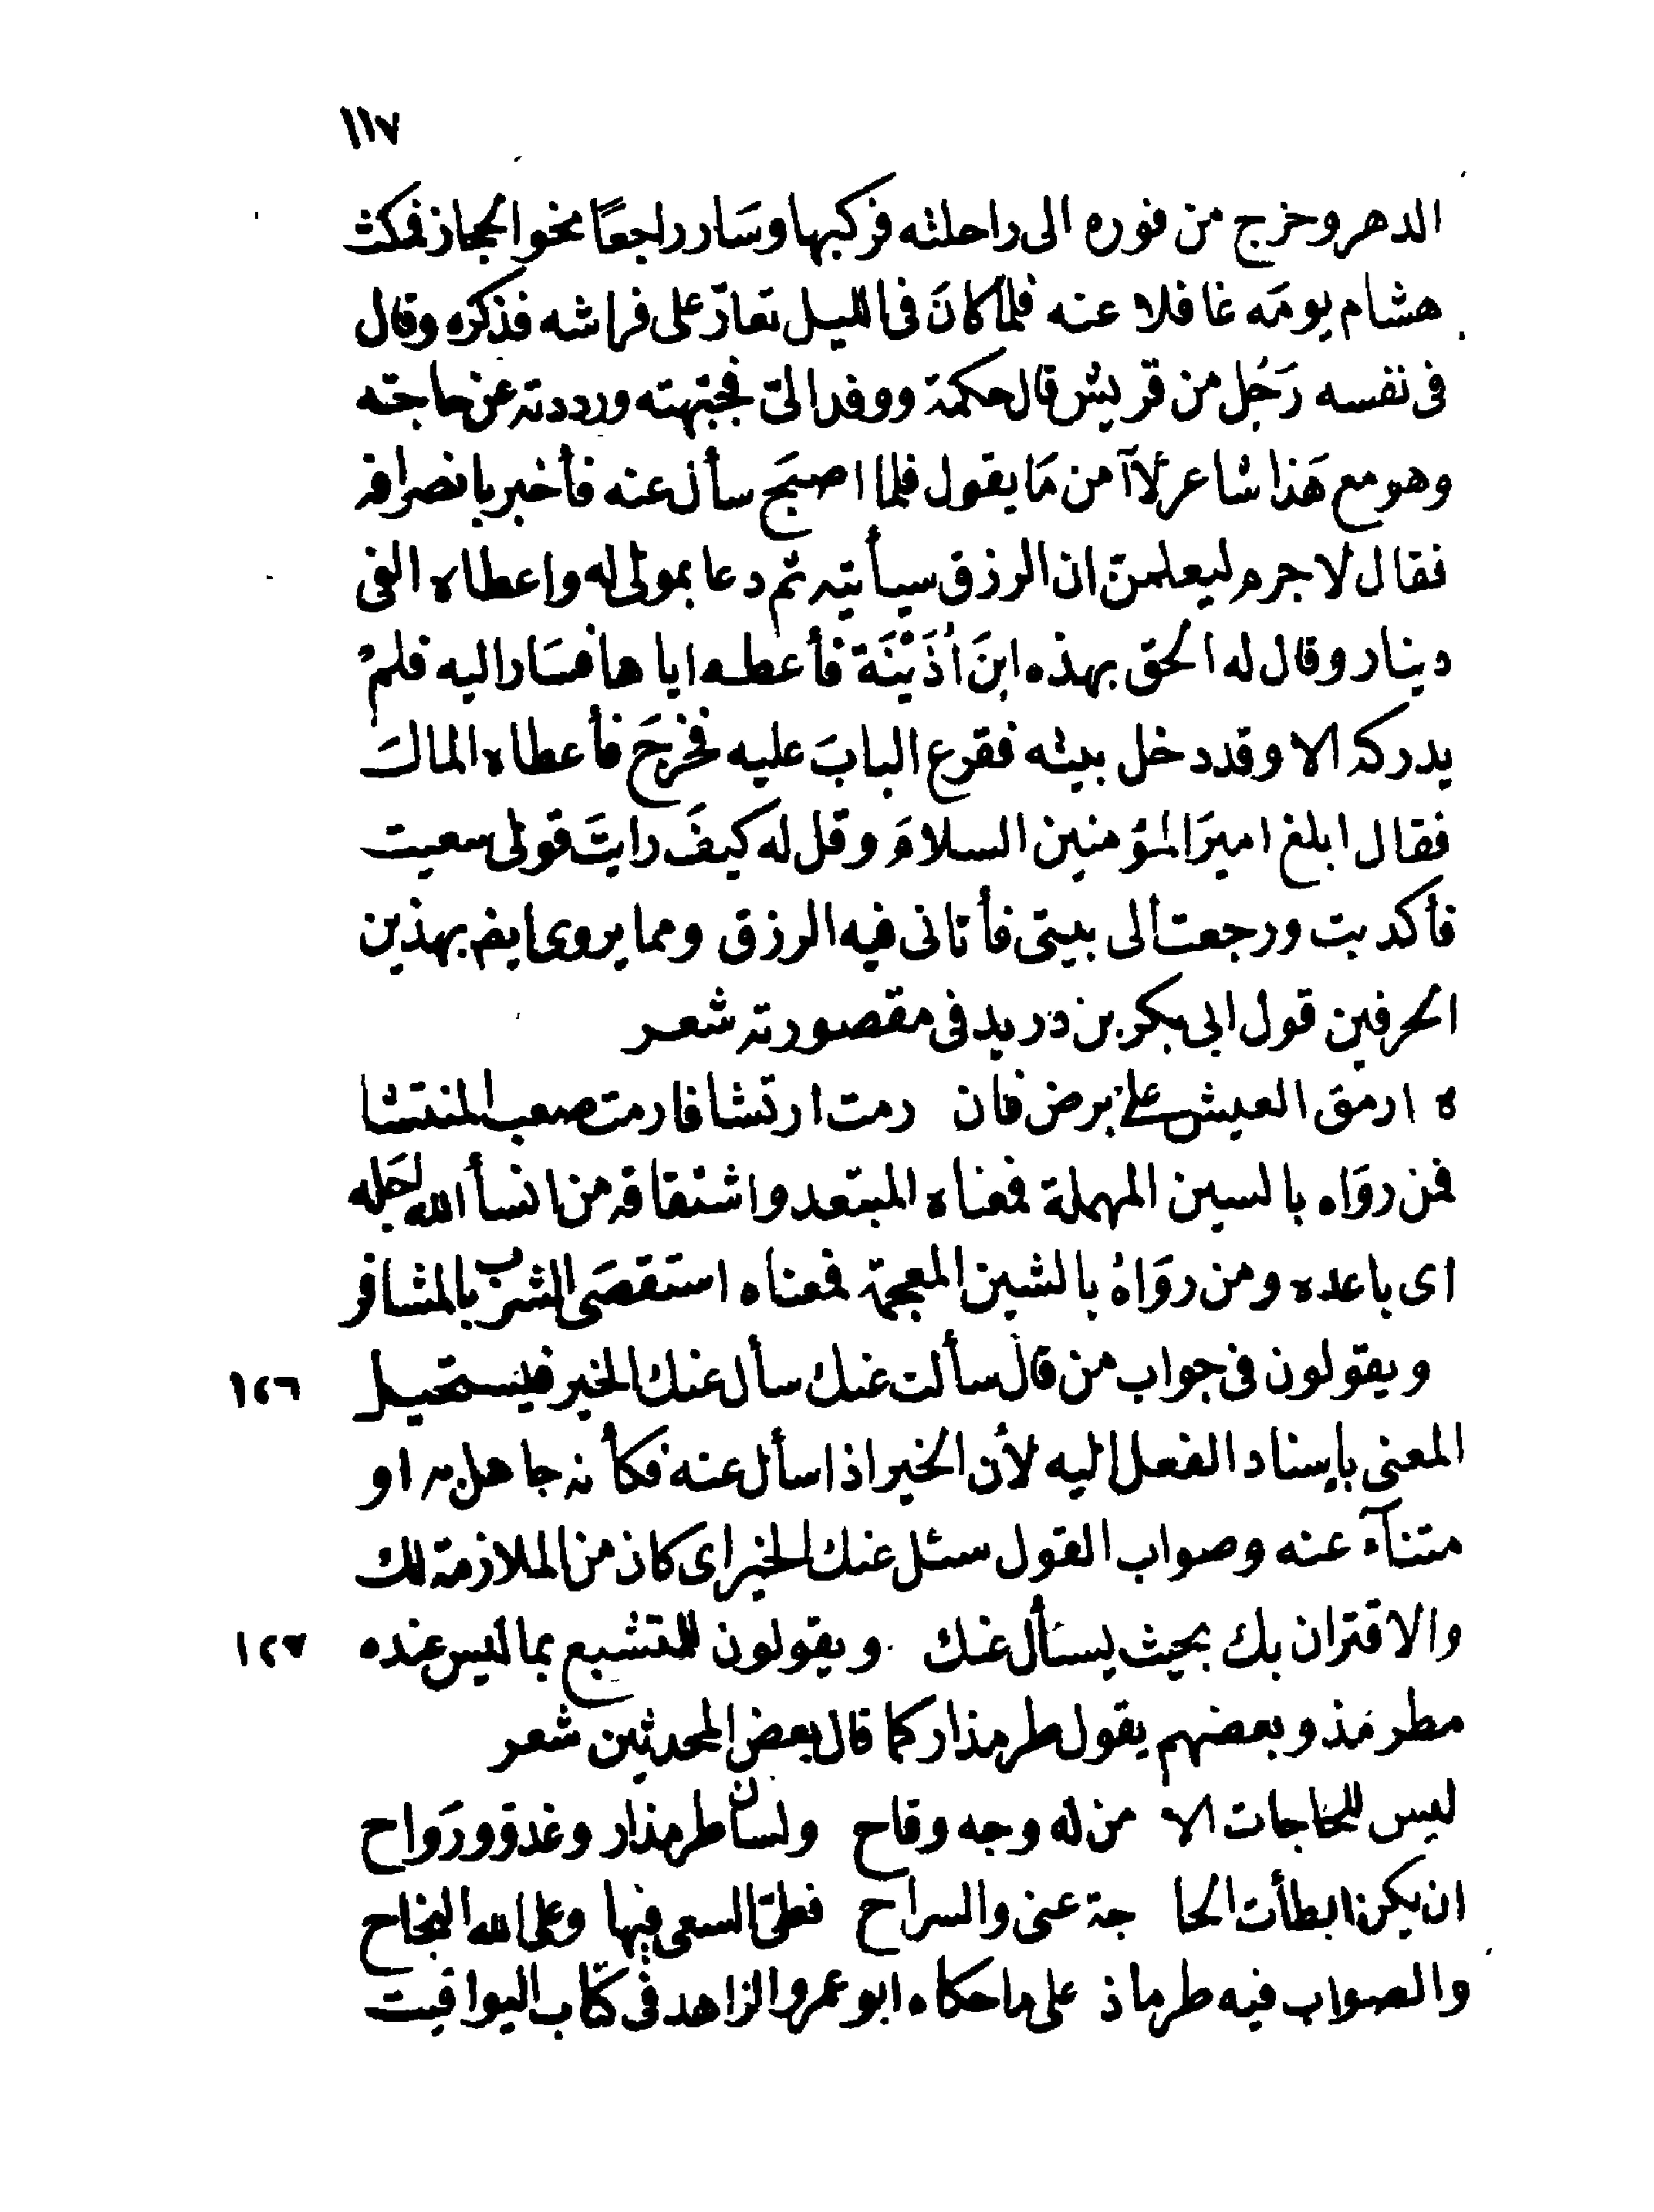 ١١٧
الدهر وخرج من فوره الى راحلته فركبها وسَار راجعًا نحو الحجاز فمكث
هشام يومَه غافلا عنه فلما كانَ فى الليل تعارّ على فراشه فذكره وقال
فى نفسه رَجُل من قريش قال حكمة ووفد الىّ فجبّهته ورددته عن حاجته
وهو مع هَذا شاعر لاآمن مَا يقول فلما اصبَح سأل عنه فأخبر بانصرافه
فقال لا جرم ليعلمنّ ان الرزق سيأتيه ثم دعا بمولى له واعطاه الفى
دينار وقال له الحق بهذه ابنَ اُذَيْنَة فأعطه اياها فسَار اليه فلمْ
يدركه الا وقد دخل بيته فقرع البابَ عليه فخرجَ فأعطاه المالَ
فقال ابلغ اميرَ المؤمنين السلامَ وقل له كيفَ رايتَ قولى سعيت
فأكديت ورجعت الى بيتى فأتانى فيه الرزق ومما يروى ايضا بهذين
الحرفين قول ابى بكر بن دريد فى مقصورته شعر
ه ارمق العيش على برض فان رمت ارتشافا رمت صعب المنتشا
فمن روَاه بالسين المهملة فمعناه المبتعد واشتقاقه من انسأ الله اجَله
اى باعده ومن روَاهُ بالشين المعجمة فمعناه استقصَى الشرب بالمشافر
ويقولون فى جواب من قال سألت عنك سأل عنك الخير فيستحيل ١٢٦
المعنى بإسناد الفعل اليه لأن الخير اذا سأل عنه فكأنه جاهل به او
متنآء عنه وصواب القول سئل عنك الخير اى كان من الملازمة لك
والاقتران بك بحيث يسأل عنك ويقولون للمتشبع بما ليس عنده ١٢٧
مطرمَذ وبعضهم يقول طرمذار كما قال بعض المحدثين شعر
ليس للحاجات الا من له وجه وقاح ولسان طرمذار وغدوّ ورَواح
ان يكن ابطأت الحا جة عنى والسراح فعلىّ السعى فيها وعلى الله النجاح
والصواب فيه طرماذ على ما حكاه ابو عمرو الزاهد فى كتاب اليواقيت